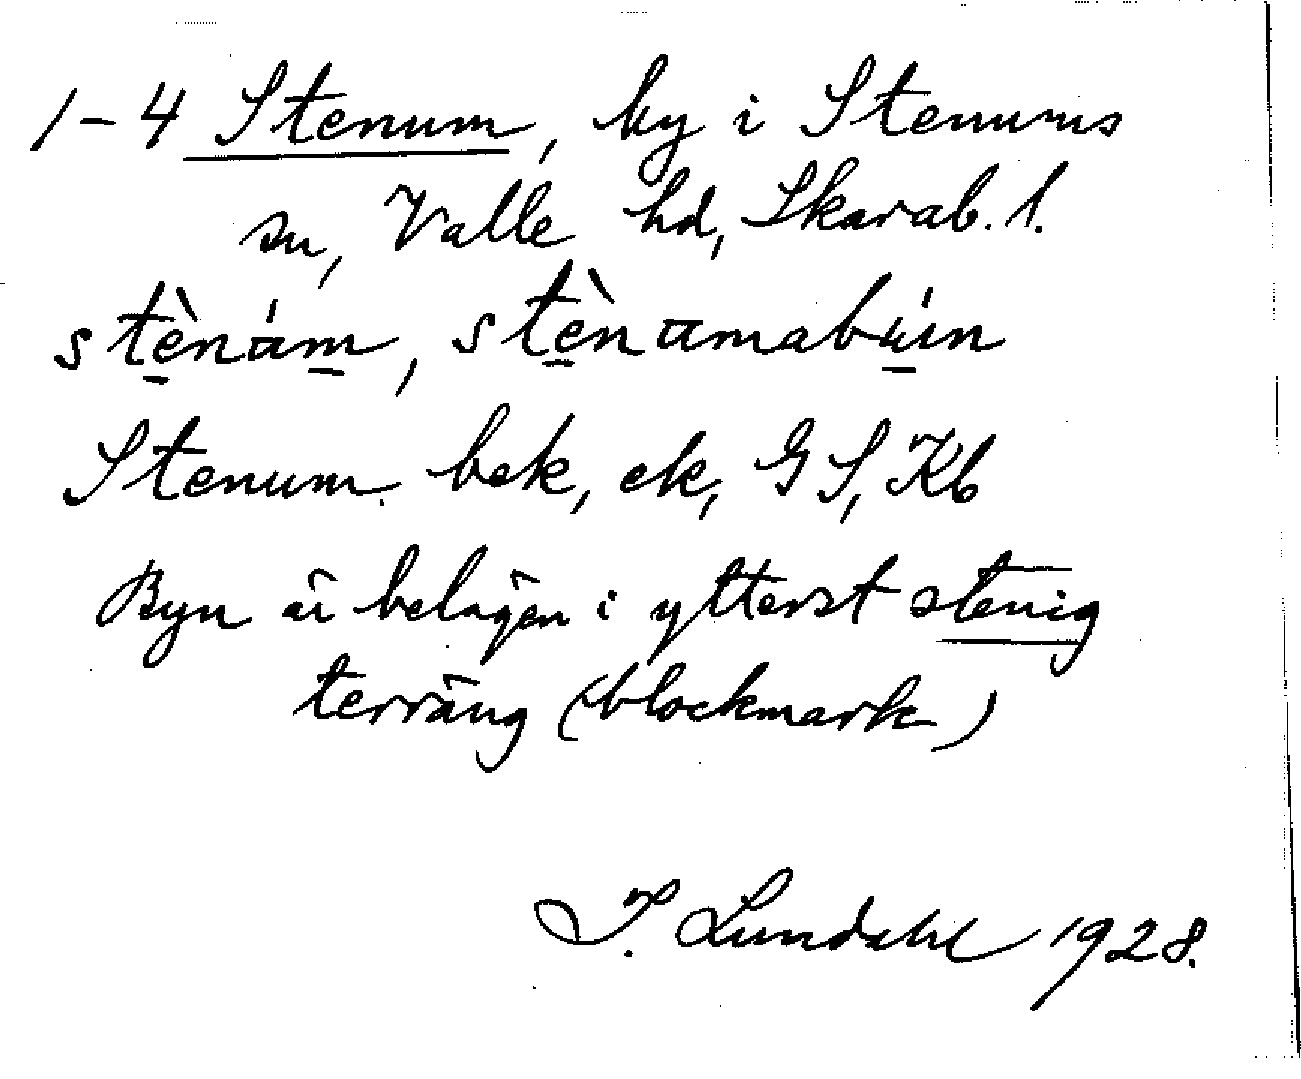 1-4 Stenum, by i Stenums
sn, Valle hd, Skarab. l.
stènám, stènamabýin
Stenum. bek, ek, GS, Kb
Byn är belägen i ytterst stenig
terräng (blockmark)
I. Lundahl 1928.